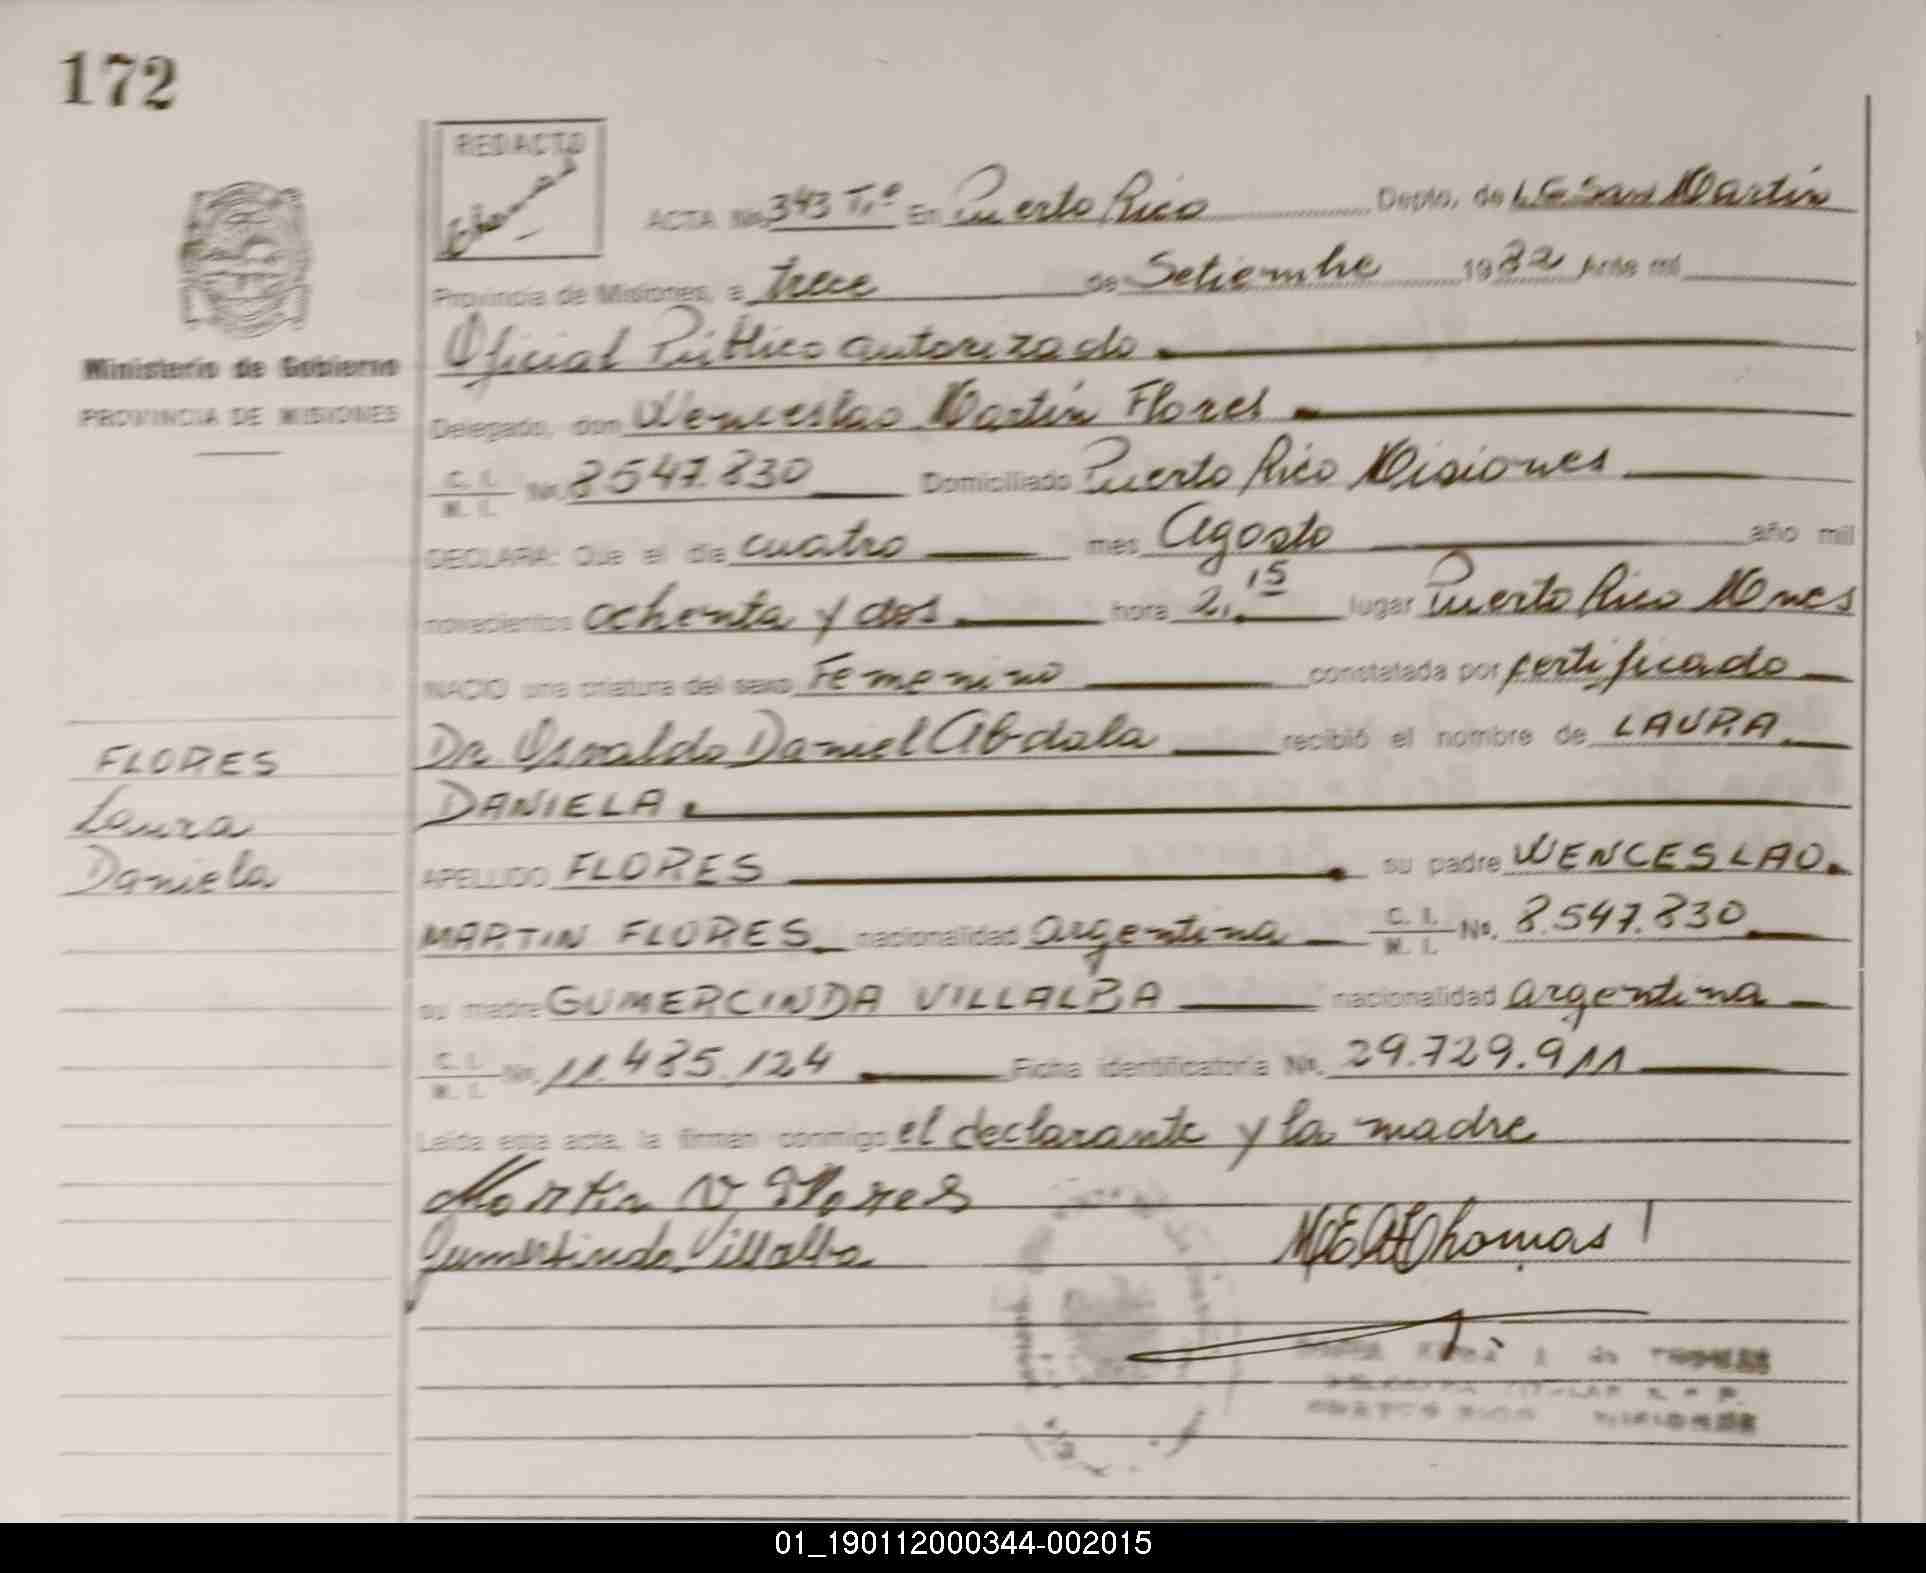 172
REDACTO
ACTA No. 343 Tº En Puerto Rico Depto. de L. G. San Martín
Provincia de Misiones, a trece de Setiembre 1982 Ante mí
Oficial Público autorizado
Ministerio de Gobierno
PROVINCIA DE MISIONES
Delegado, don Wenceslao Martín Flores
C. I. M. I. No. 8547.830 Domiciliado Puerto Rico Misiones
DECLARA: Que el día cuatro mes Agosto año mil
novecientos ochenta y dos hora 2,15 lugar Puerto Rico Mnes
NACIO una criatura del sexo Femenino constatada por certificado
Dr. Osvaldo Daniel Abdala recibió el nombre de LAURA
DANIELA
FLORES
Laura
Daniela
APELLIDO FLORES su padre WENCESLAO
MARTIN FLORES nacionalidad argentina C. I. M. I. No. 8.547.830
su madre GUMERCINDA VILLALBA nacionalidad argentina
C. I. M. I. No. 11.485.124 Ficha identificatoria No. 29.729.911
Leída esta acta, la firman conmigo el declarante y la madre
Martin W Flores
Gumersinda Villalba
Thomas
PUERTO RICO MISIONES
01_190112000344-002015